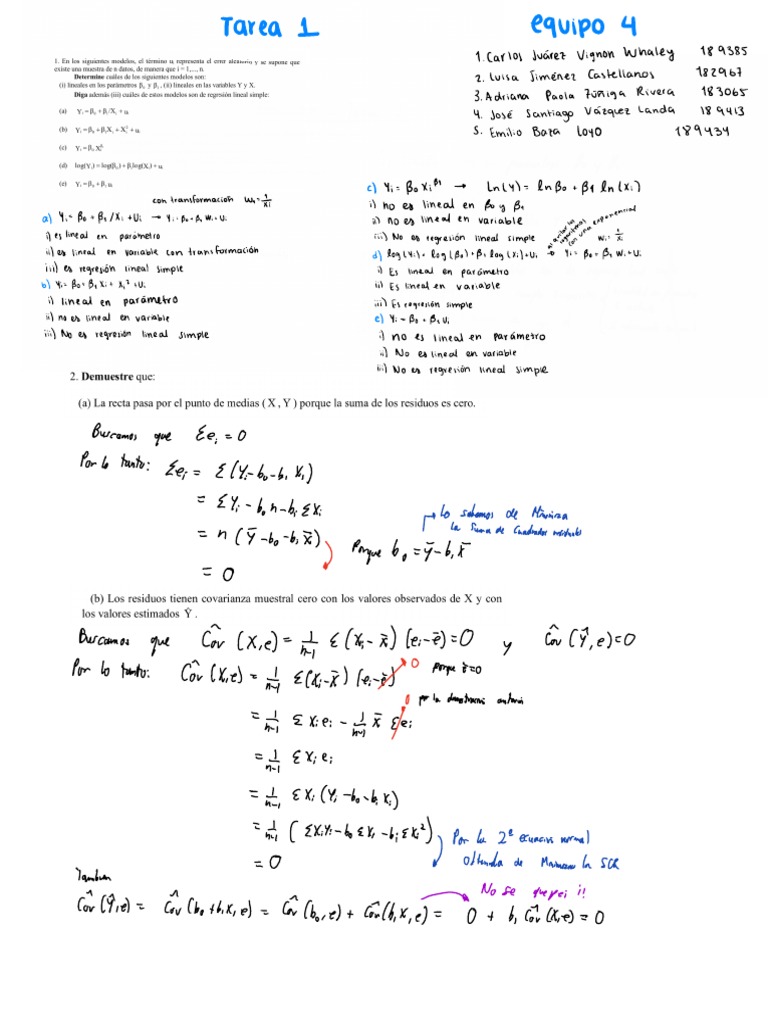 Tarea 1
equipo 4
1. Carlos Juárez Vignon Whaley 189385
2. Luisa Jiménez Castellanos 182967
3. Adriana Paola Zúñiga Rivera 183065
4. José Santiago Vázquez Landa 189413
5. Emilio Baza Loyo 189434
1. En los siguientes modelos, el término u, representa el error aleatorio y se supone que
existe una muestra de n datos, de manera que i = 1,..., n.
Determine cuáles de los siguientes modelos son:
(i) lineales en los parámetros β₀ y β₁, (ii) lineales en las variables Y y X.
Diga además (iii) cuáles de estos modelos son de regresión lineal simple:
(a) Yᵢ = β₀ + β₁/Xᵢ + uᵢ
(b) Yᵢ = β₀ + β₁Xᵢ + Xᵢ² + uᵢ
(c) Yᵢ = β₀ Xᵢ^β₁
(d) log(Yᵢ) = log(β₀) + β₁log(Xᵢ) + uᵢ
(e) Yᵢ = β₀ + β₁uᵢ
con transformación Wᵢ = 1/Xᵢ
a) Yᵢ = β₀ + β₁/Xᵢ + Uᵢ → Yᵢ = β₀ + β₁ Wᵢ + Uᵢ
i) es lineal en parámetro
ii) es lineal en variable con transformación
iii) es regresión lineal simple
b) Yᵢ = β₀ + β₁ Xᵢ + Xᵢ² + Uᵢ
i) lineal en parámetro
ii) no es lineal en variable
iii) No es regresión lineal simple
c) Yᵢ = β₀ Xᵢ^β₁ → Ln(Y) = lnβ₀ + β₁ ln(Xᵢ)
i) no es lineal en β₀ y β₁
ii) no es lineal en variable
iii) No es regresión lineal simple
al quitar los logaritmos con una exponencial
Wᵢ = 1/Xᵢ
d) log(Yᵢ) = log(β₀) + β₁ log(Xᵢ) + Uᵢ → Yᵢ = β₀ + β₁ Wᵢ + Uᵢ
i) Es lineal en parámetro
ii) Es lineal en variable
iii) Es regresión simple
e) Yᵢ = β₀ + β₁ Uᵢ
i) no es lineal en parámetro
ii) No es lineal en variable
iii) No es regresión lineal simple
2. Demuestre que:
(a) La recta pasa por el punto de medias ( X , Y ) porque la suma de los residuos es cero.
Buscamos que Σeᵢ = 0
Por lo tanto: Σeᵢ = Σ(Yᵢ - b₀ - b₁ Xᵢ)
= ΣYᵢ - b₀ n - b₁ ΣXᵢ
= n (Ȳ - b₀ - b₁ X̄) Porque b₀ = Ȳ - b₁ X̄
→ Lo sabemos de Minimizar
la Suma de Cuadrados residuales
= 0
(b) Los residuos tienen covarianza muestral cero con los valores observados de X y con
los valores estimados Ŷ .
Buscamos que Cov̂ (X,e) = 1/(n-1) Σ(Xᵢ - X̄) (eᵢ - ē) = 0 y Cov̂ (Ŷ,e) = 0
Por lo tanto: Cov̂ (X,e) = 1/(n-1) Σ(Xᵢ - X̄) (eᵢ - ē) 0 porque ē = 0
= 1/(n-1) ΣXᵢeᵢ - 1/(n-1) X̄ Σeᵢ 0 por la demostración anterior
= 1/(n-1) ΣXᵢeᵢ
= 1/(n-1) ΣXᵢ(Yᵢ - b₀ - b₁Xᵢ)
= 1/(n-1) (ΣXᵢYᵢ - b₀ΣXᵢ - b₁ΣXᵢ²) Por la 2ª ecuación normal
obtenida de Minimizar la SCR
= 0
También
No se que pei ¡!
Cov̂ (Ŷ,e) = Cov̂ (b₀ + b₁X,e) = Cov̂ (b₀,e) + Cov̂ (b₁X,e) = 0 + b₁ Cov̂ (X,e) = 0